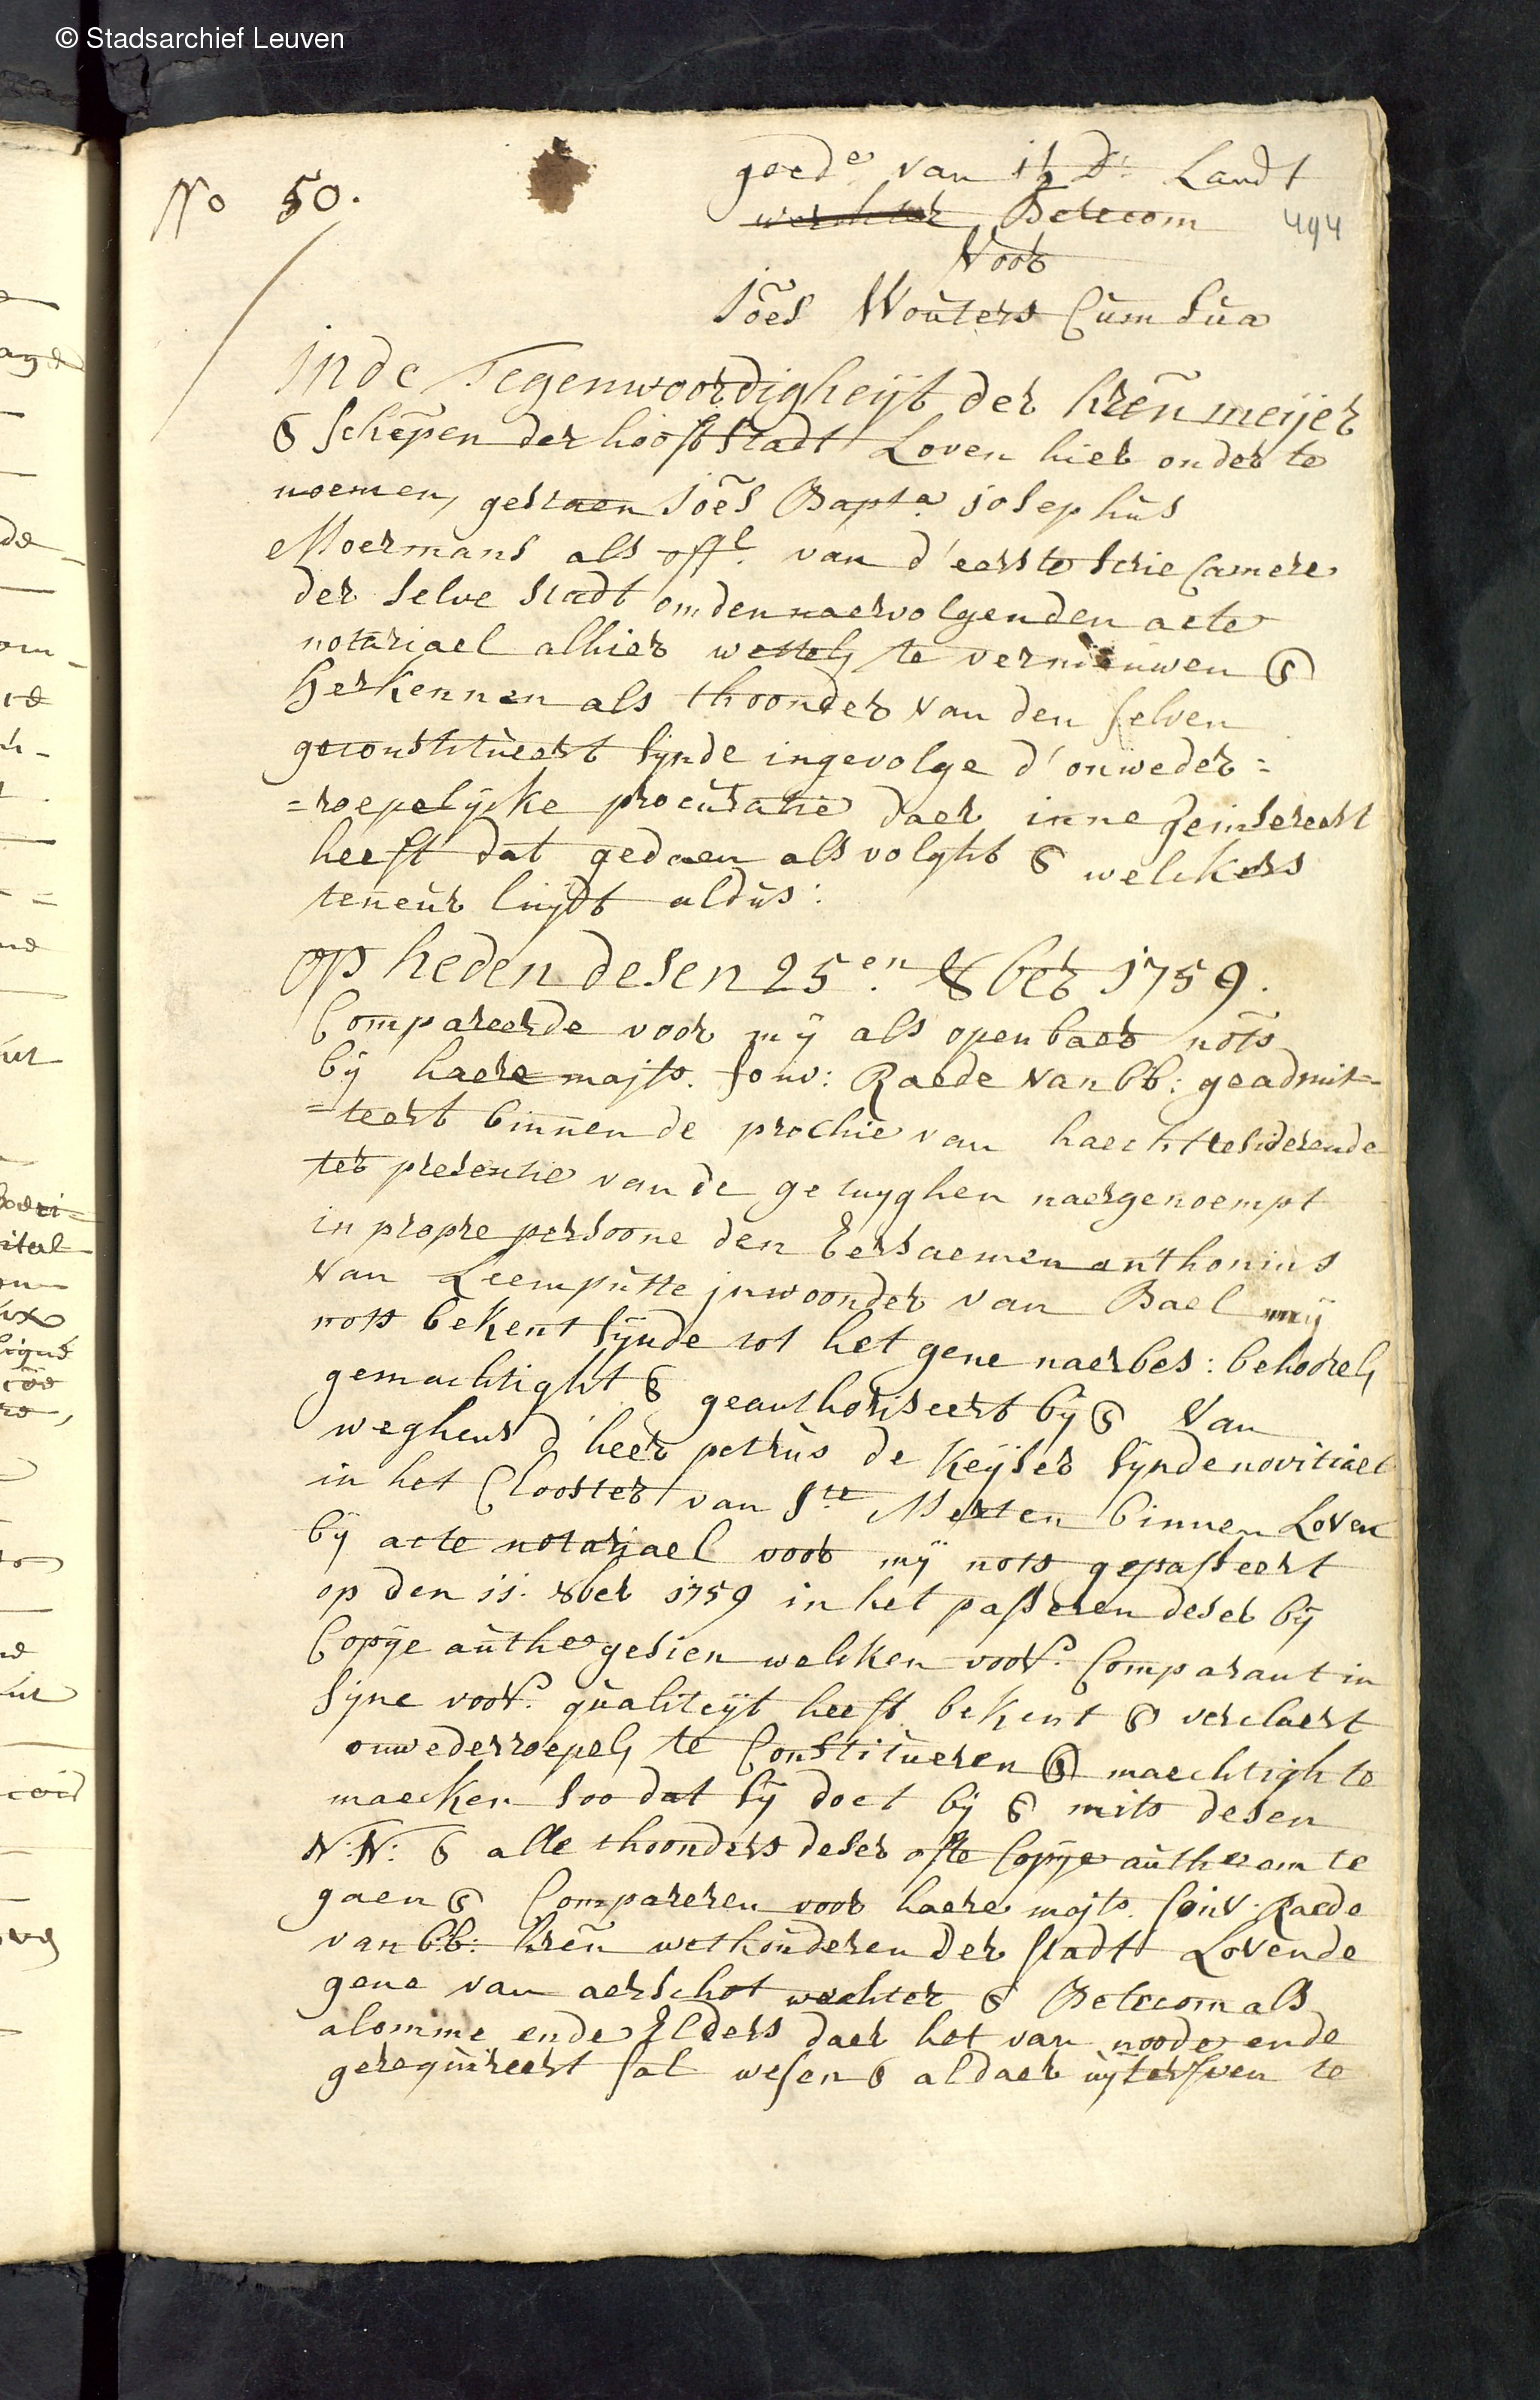 © Stadsarchief Leuven
No 50.
goede van 1½ dr Landt
werchter Betecom
494
Voor
Jões Woúters Cúm súa
In de Tegenwoordigheijt der hreñ meijer
& schepen der hooftstadt Loven hier onder te
noemen, gestaen Jões Bapta josephús
Moermans als offl. van d'eerste secrie Camere
der selve stadt om den naervolgenden acte
notariael alhier wettelq te vernieuwen &
herkennen als thoonder van den selven
geconstitúeert sijnde ingevolge d'onweder=
=roepelijcke procúratie daer inne geinsereert
heeft dat gedaen als volght & welckers
teneúr luijdt aldús:
op heden desen 25en. 8ber 1759.
Compareerde voor mij als openbaer nots
bij haere majts. souv: Raede van bb: geadmit=
=teert binnen de prochie van haecht residerende
ter presentie van de getuyghen naergenoempt
in propre persoone den Eersaemen anthonius
van Leempútte jnwoonder van Bael mij
nots bekent sijnde tot het gene naerbes: behoorelq
gemachtight & geauthoriseert bij & van
weghens d'heer petrús de Keijser sijnde novitiaet
in het Clooster van Ste Merten binnen Loven
bij acte notariael voor mij nots gepasseert
op den 11. 8ber 1759 in het passeren deser bij
Copije aúthe gesien welcken voors. Comparant in
sijne voors. qúaliteijt heeft bekent & verclaert
onwederroepelq te Constitúeren & maechtigh te
maecken soo dat hij doet bij & mits desen
N:N: & alle thoonders deser ofte Copije aúthe om te
gaen & Compareren voor haere majts. souv. Raede
van bb: hreñ wethoúderen der stadt Loven de
gene van aerschot wechter & Betecom als
alomme ende Elders daer het van noode ende
gereqúireert sal wesen & aldaer uijt te erfven te